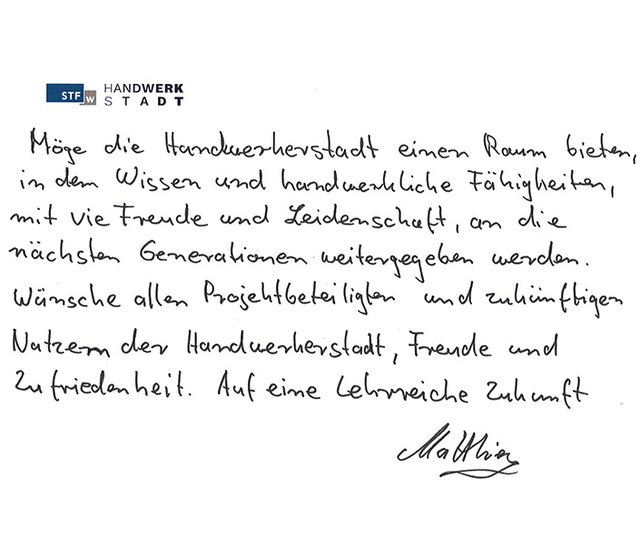 STF W HANDWERK
STADT
Möge die Handwerkerstadt einen Raum bieten,
in dem Wissen und handwerkliche Fähigkeiten,
mit vie Freude und Leidenschaft, an die
nächsten Generationen weitergegeben werden.
Wünsche allen Projektbeteiligten und zukünftigen
Nutzern der Handwerkerstadt, Freude und
Zufriedenheit. Auf eine Lehrreiche Zukunft
Matthias